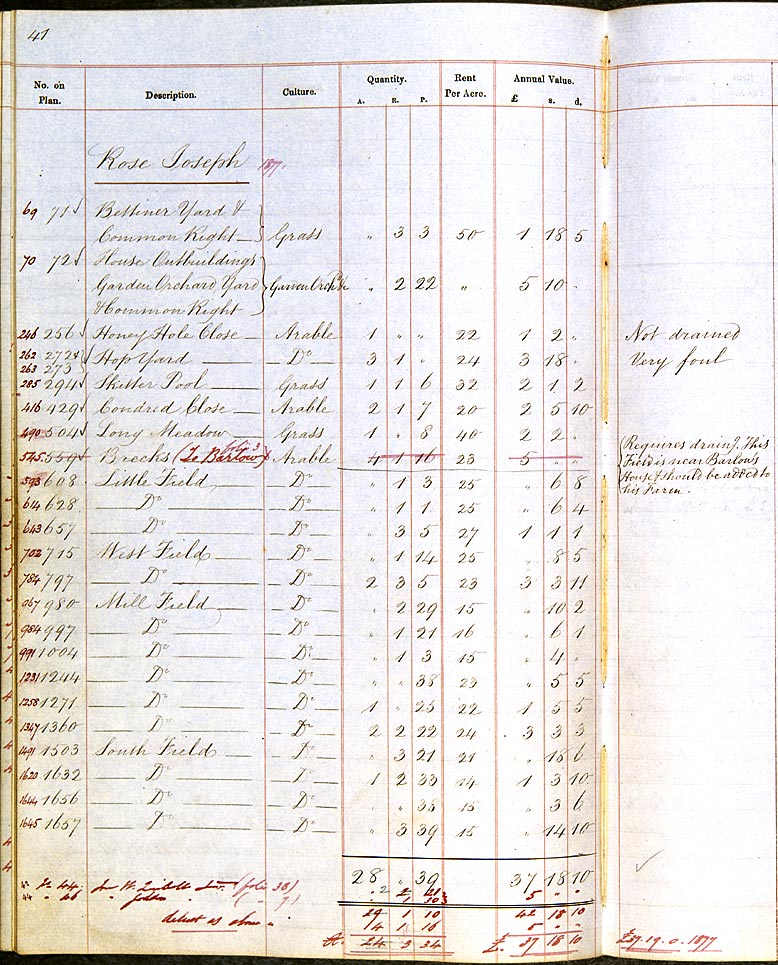 41
No. on Plan. Description. Culture. Quantity. Rent Per Acre. Annual Value.
A. R. P. £ s. d.
Rose Joseph 1877.
69 71 Bettiner Yard &
Common Right Grass " 3 3 50 1 18 5
70 72 House Outbuildings
Garden Orchard Yard Garden Orch " 2 22 " 5 10 "
& Common Right
246 256 Honey Hole Close Arable 1 " " 22 1 2 " Not drained
262 272 Hop Yard Do 3 1 " 24 3 18 " Very foul
263 273
285 294 Skitter Pool Grass 1 1 6 32 2 1 2
416 429 Condred Close Arable 2 1 7 20 2 5 10
490 504 Long Meadow Grass 1 " 8 40 2 2 "
545 559 Brecks (To Barlow folio 3) Arable 4 1 16 23 5 " " (Requires draing. This
Field is near Barlow's
House & should be added to
his Farm.
593 608 Little Field Do " 1 3 25 " 6 8
614 628 Do Do " 1 1 25 " 6 4
643 657 Do Do " 3 5 27 1 1 1
702 715 West Field Do " 1 14 25 " 8 5
784 797 Do Do 2 3 5 23 3 3 11
967 980 Mill Field Do " 2 29 15 " 10 2
984 997 Do Do " 1 21 16 " 6 1
991 1004 Do Do " 1 3 15 " 4 "
1231 1244 Do Do " " 38 23 " 5 5
1258 1271 Do Do 1 " 25 22 1 5 5
1347 1360 Do Do 2 2 22 24 3 3 3
1491 1503 South Field Do " 3 21 21 " 18 6
1620 1632 Do Do 1 2 33 14 1 3 10
1644 1656 Do Do " " 38 15 " 3 6
1645 1657 Do Do " 3 39 15 " 14 10
28 " 39 37 18 10
(folio 38) 5 " "
29 1 10 42 18 10
deduct as above 14 1 16 5 " "
A. 24 3 34 £ 37 18 10 £37.19.0. 1877